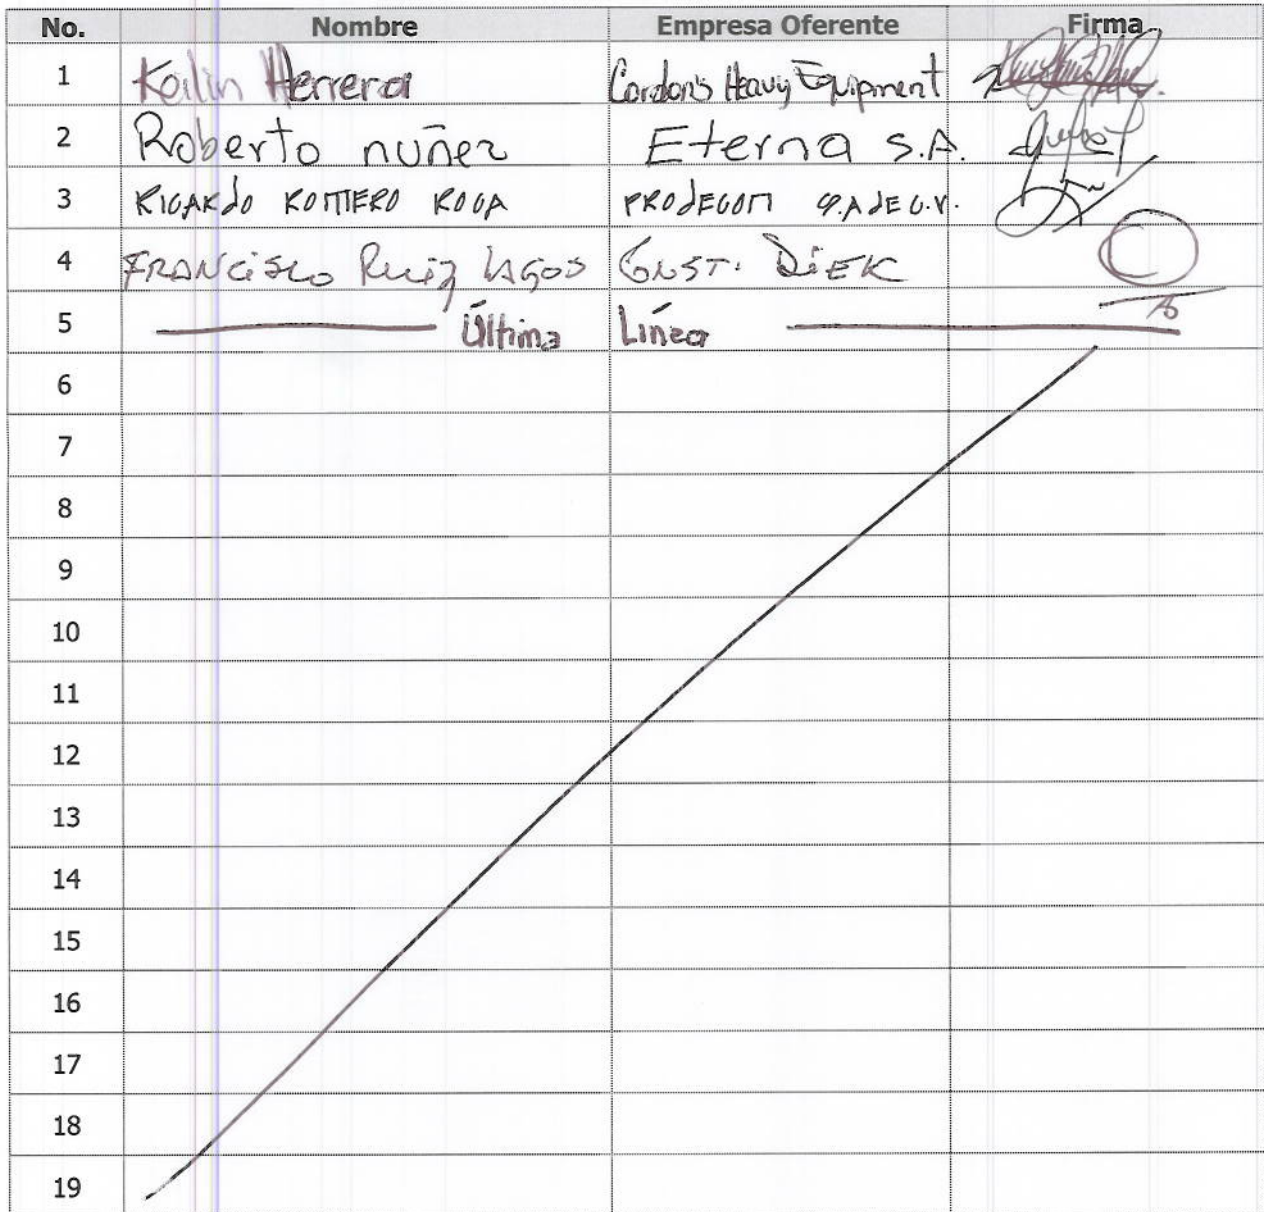 No. Nombre Empresa Oferente Firma
1 Keilin Herrera Cordon's Heavy Equipment
2 Roberto nuñez Eterna S.A.
3 RICARDO ROMERO ROCA PRODECON S.A DE C.V.
4 FRANCISCO Ruiz LAGOS CONST. DIEK
5 Última Línea
6
7
8
9
10
11
12
13
14
15
16
17
18
19